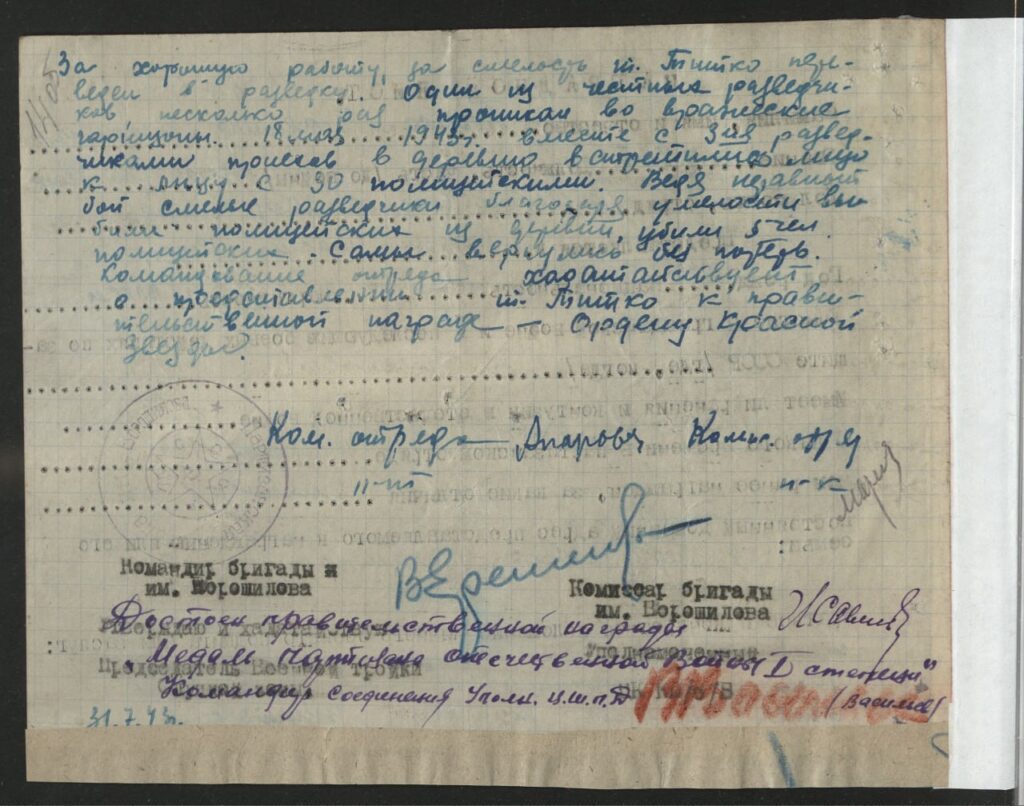 За хорошую работу, за смелость т. Титко пере-
веден в разведку. Один из честных разведчи-
ков, несколько раз проникал во вражеские
гарнизоны. 18 мая 1943г. вместе с 3мя развед-
чиками проехав в деревню встретились лицо
к лицу с 30 полицейскими. Ведя неравный
бой смелые разведчики благодаря умелости вы
били полицейских из деревни, убили 5 чел.
полицейских. Сами вернулись без потерь.
Командование отряда хадатайствует
о представлении т. Титко к прави-
тельственной награде – Ордену Красной
Звезды.
Ком. отряда Комис. отр
Командир бригады
им. Ворошилова
Комиссар бригады
им. Ворошилова
Достоин правительственной награды
Утверждаю и
Уполномоченный
„Медаль Партизана отечественной Войны I степени"
Председатель Военной тройки
Командир соединения Уполн. Ц.Ш.П.Д
(Васильев)
31.7.43г.